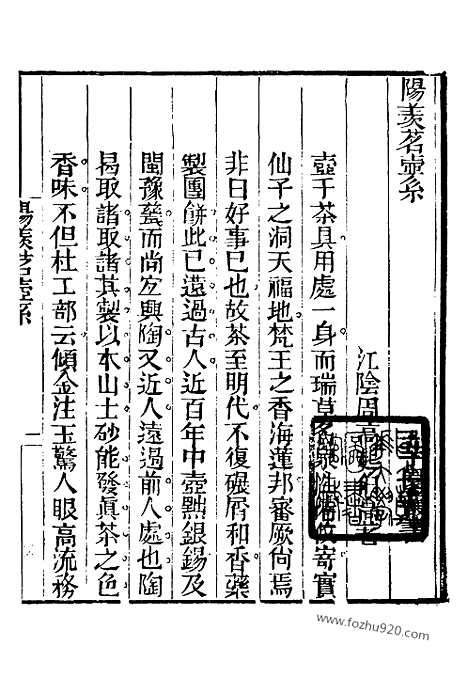 陽羨茗壺系
江陰周高起伯高著
壺于茶具用處一身而瑞草名泉性情攸寄實
仙子之洞天福地梵王之香海蓮邦審厥尚焉
非曰好事已也故茶至明代不復碾屑和香藥
製團餅此已遠過古人近百年中壺黜銀錫及
閩豫甆而尚宐興陶又近人遠過前人處也陶
曷取諸取諸其製以本山土砂能發眞茶之色
香味不但杜工部云傾金注玉驚人眼高流務
陽羨茗壺系 一
www.fozhu920.com